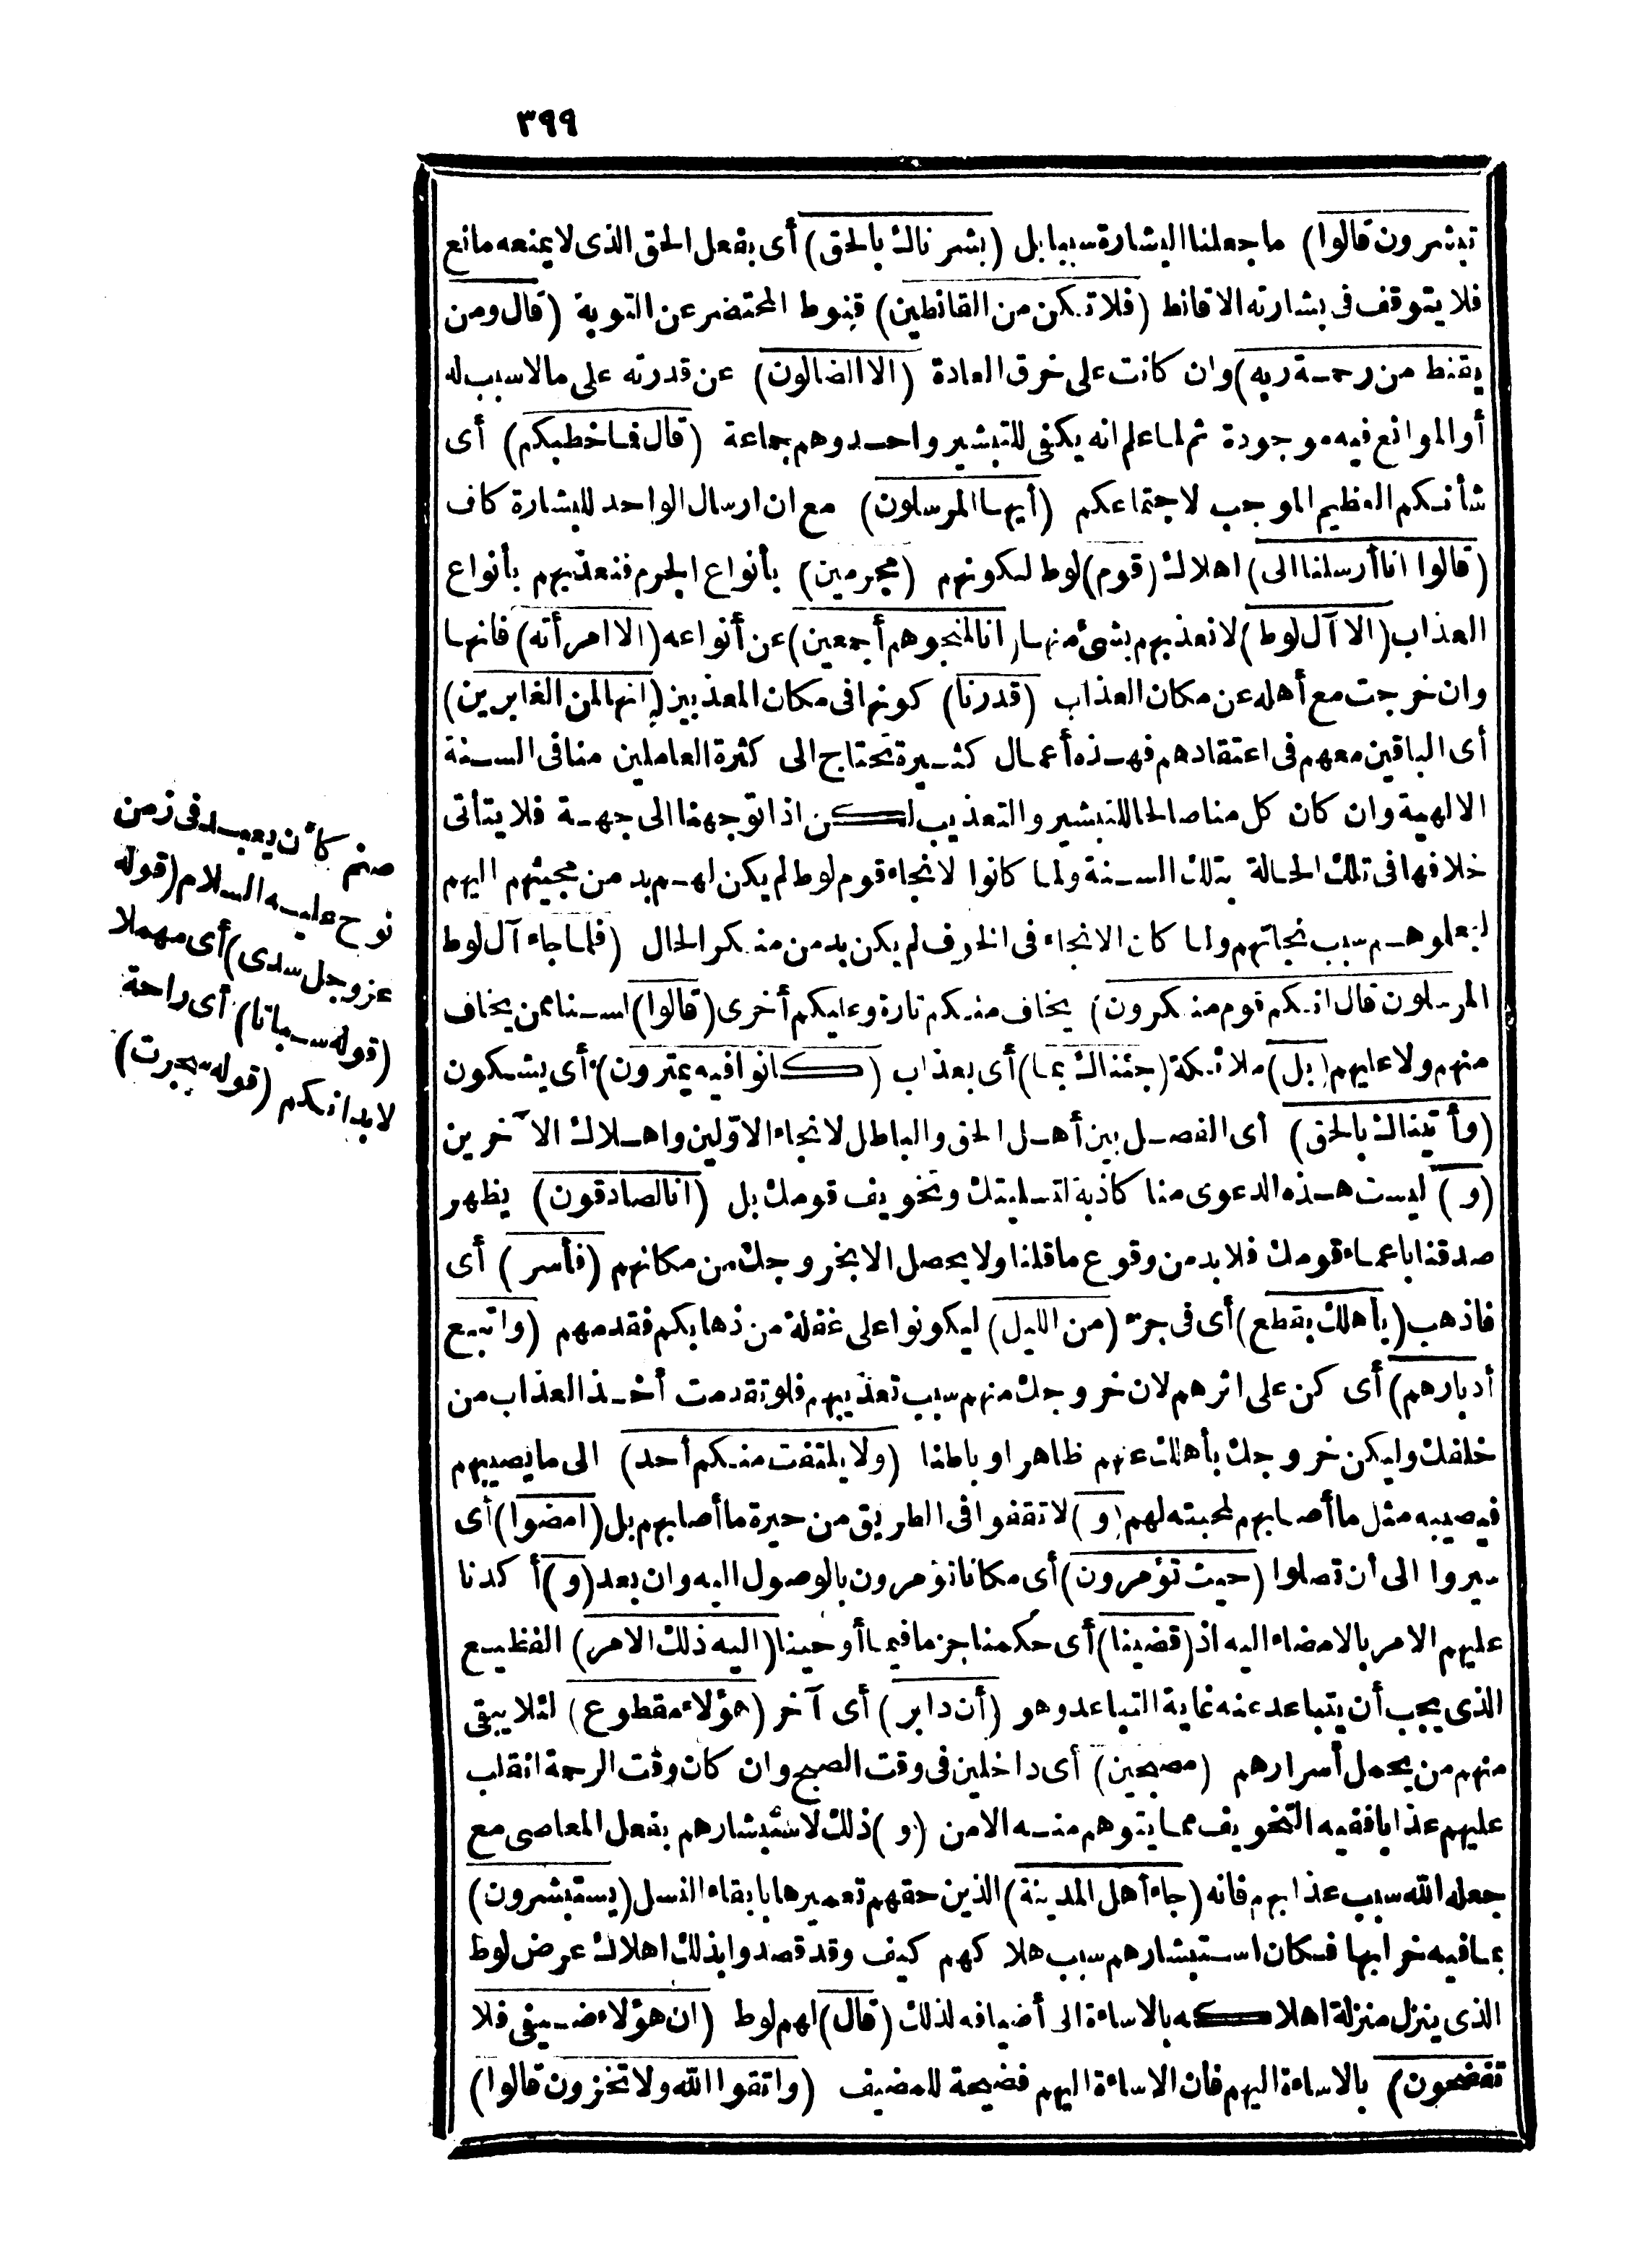 ٣٩٩
تبشرون قالوا) ما جعلنا البشارة سببا بل (بشرناك بالحق) أى بفعل الحق الذى لا يمنعه مانع
فلا يتوقف فى بشارته الا قانط (فلا تكن من القانطين) قنوط المحتضر عن التوبة (قال ومن
يقنط من رحمة ربه) وان كانت على خرق العادة (الا الضالون) عن قدرته على ما لا سبب له
أو الموانع فيه موجودة ثم لما علم انه يكفى للتبشير واحد وهم جماعة (قال فما خطبكم) أى
شأنكم العظيم الموجب لاجتماعكم (أيها المرسلون) مع ان ارسال الواحد للبشارة كاف
(قالوا انا أرسلنا الى) اهلاك (قوم) لوط لكونهم (مجرمين) بأنواع الجرم فنعذبهم بأنواع
العذاب (الا آل لوط) لا نعذبهم بشئ منها (انا لمنجوهم أجمعين) عن أنواعه (الا امرأته) فانها
وان خرجت مع أهله عن مكان العذاب (قدرنا) كونها فى مكان المعذبين (انها لمن الغابرين)
أى الباقين معهم فى اعتقادهم فهذه أعمال كثيرة تحتاج الى كثرة العاملين منا فى السنة
الالهية وان كان كل منا صالحا للتبشير والتعذيب لكن اذا توجهنا الى جهة فلا يتأتى
خلافها فى تلك الحالة بتلك السنة ولما كانوا لانجاء قوم لوط لم يكن لهم بد من مجيئهم اليهم
ليعلوهم سبب نجاتهم ولما كان الانجاء فى الخوف لم يكن بد من منكر الحال (فلما جاء آل لوط
المرسلون قال انكم قوم منكرون) يخاف منكم تارة وعليكم أخرى (قالوا) لسنا ممن يخاف
منهم ولا عليهم (بل) ملائكة (جئناك بما) أى بعذاب (كانوا فيه يمترون) أى يشكون
(وأتيناك بالحق) أى الفصل بين أهل الحق والباطل لانجاء الاوّلين واهلاك الآخرين
(و) ليست هذه الدعوى منا كاذبة لتسليتك وتخويف قومك بل (انا لصادقون) يظهر
صدقنا باعماء قومك فلا بد من وقوع ما قلنا ولا يحصل الا بخروجك من مكانهم (فأسر) أى
فاذهب (بأهلك بقطع) أى فى جزء (من الليل) ليكونوا على غفلة من ذهابكم فقدمهم (واتبع
أدبارهم) أى كن على اثرهم لان خروجك منهم سبب تعذيبهم فلو تقدمت أخذ العذاب من
خلفك وليكن خروجك بأهلك عنهم ظاهرا وباطنا (ولا يلتفت منكم أحد) الى ما يصيبهم
فيصيبه مثل ما أصابهم لمحبته لهم (و) لا تقفوا فى الطريق من حيرة ما أصابهم بل (امضوا) أى
سيروا الى أن تصلوا (حيث تؤمرون) أى مكانا تؤمرون بالوصول اليه وان بعد (و) أكدنا
عليهم الامر بالامضاء اليه اذ (قضينا) أى حكمنا جزما فيما أوحينا (اليه ذلك الامر) الفظيع
الذى يجب أن يتباعد عنه غاية التباعد وهو (أن دابر) أى آخر (هؤلاء مقطوع) لئلا يبقى
منهم من يحمل أسرارهم (مصبحين) أى داخلين فى وقت الصبح وان كان وقت الرحمة انقلب
عليهم عذابا ففيه التخويف مما يتوهم منه الامن (و) ذلك لاستبشارهم بفعل المعاصى مع
جعله الله سبب عذابهم فانه (جاء أهل المدينة) الذين حقهم تعميرها بابقاء النسل (يستبشرون)
بما فيه خرابها فكان استبشارهم سبب هلاكهم كيف وقد قصدوا بذلك اهلاك عرض لوط
الذى ينزل منزلة اهلاكه بالاساءة الى أضيافه لذلك (قال) لهم لوط (ان هؤلاء ضيفى فلا
تفضحون) بالاساءة اليهم فان الاساءة اليهم فضيحة للمضيف (واتقوا الله ولا تخزون قالوا)
صنم كان يعبد فى زمن
نوح عليه السلام (قوله
عز وجل سدى) أى مهملا
(قوله سباتا) أى راحة
لابدانكم (قوله سجرت)